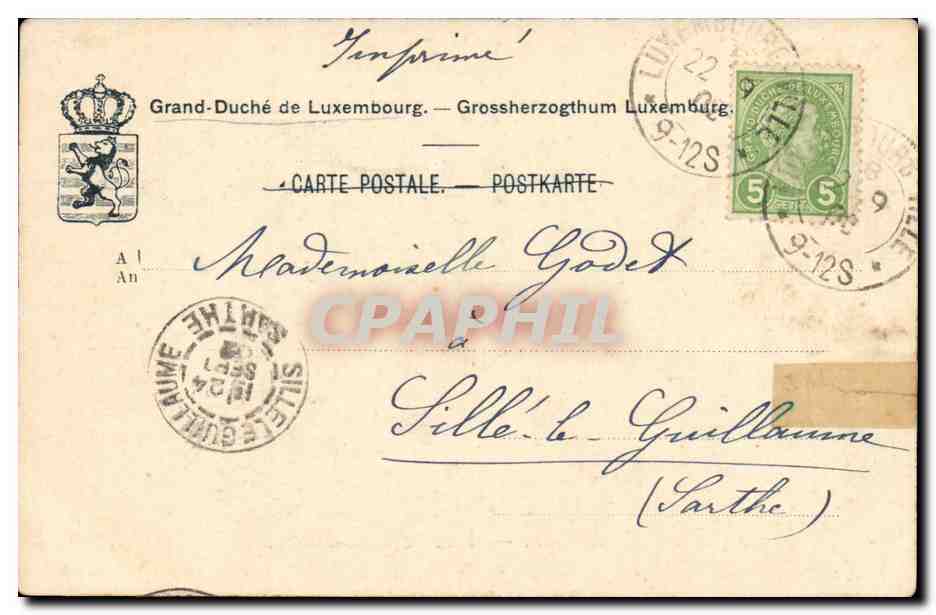 Imprimé
Grand-Duché de Luxembourg. — Grossherzogthum Luxemburg.
CARTE POSTALE. — POSTKARTE
Mademoiselle Godet
à
Sillé-le-Guillaume
(Sarthe)
A
An
LUXEMBOURG VILLE
22
9-12S
GRAND DUCHÉ DE LUXEMBOURG
5 5
9
VILLE
9-12S
SILLE LE GUILLAUME
SARTHE
24
SEPT
CPAPHIL